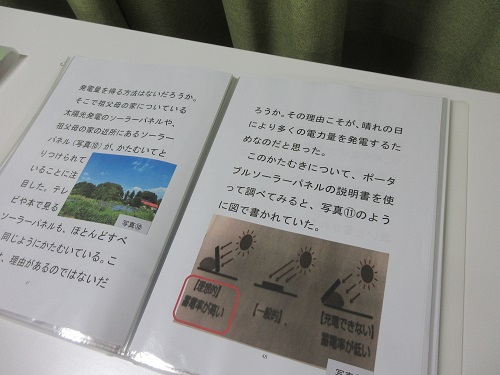 発電量を得る方法はないだろうか。
そこで祖父母の家についている
太陽光発電のソーラーパネルや、
祖父母の家の近所にあるソーラー
パネル(写真⑩)が、かたむいてと
りつけられて
いることに注
目した。テレ
ビや本で見る
ソーラーパネルも、ほとんどすべ
同じようにかたむいている。こ
、理由があるのではないだ
写真⑩
ろうか。その理由こそが、晴れの日
により多くの電力量を発電するた
めなのだと思った。
このかたむきについて、ポータ
ブルソーラーパネルの説明書を使
って調べてみると、写真⑪のよう
に図で書かれていた。
【理想的】
蓄電率が高い
【一般的】
【充電できない】
蓄電率が低い
写真